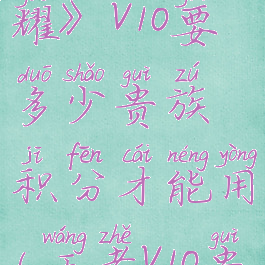 耀》V10要
duō shǎo guì zú
多少贵族
jī fēn cái néng yòng
积分才能用
wáng zhě guì
(王者V10贵